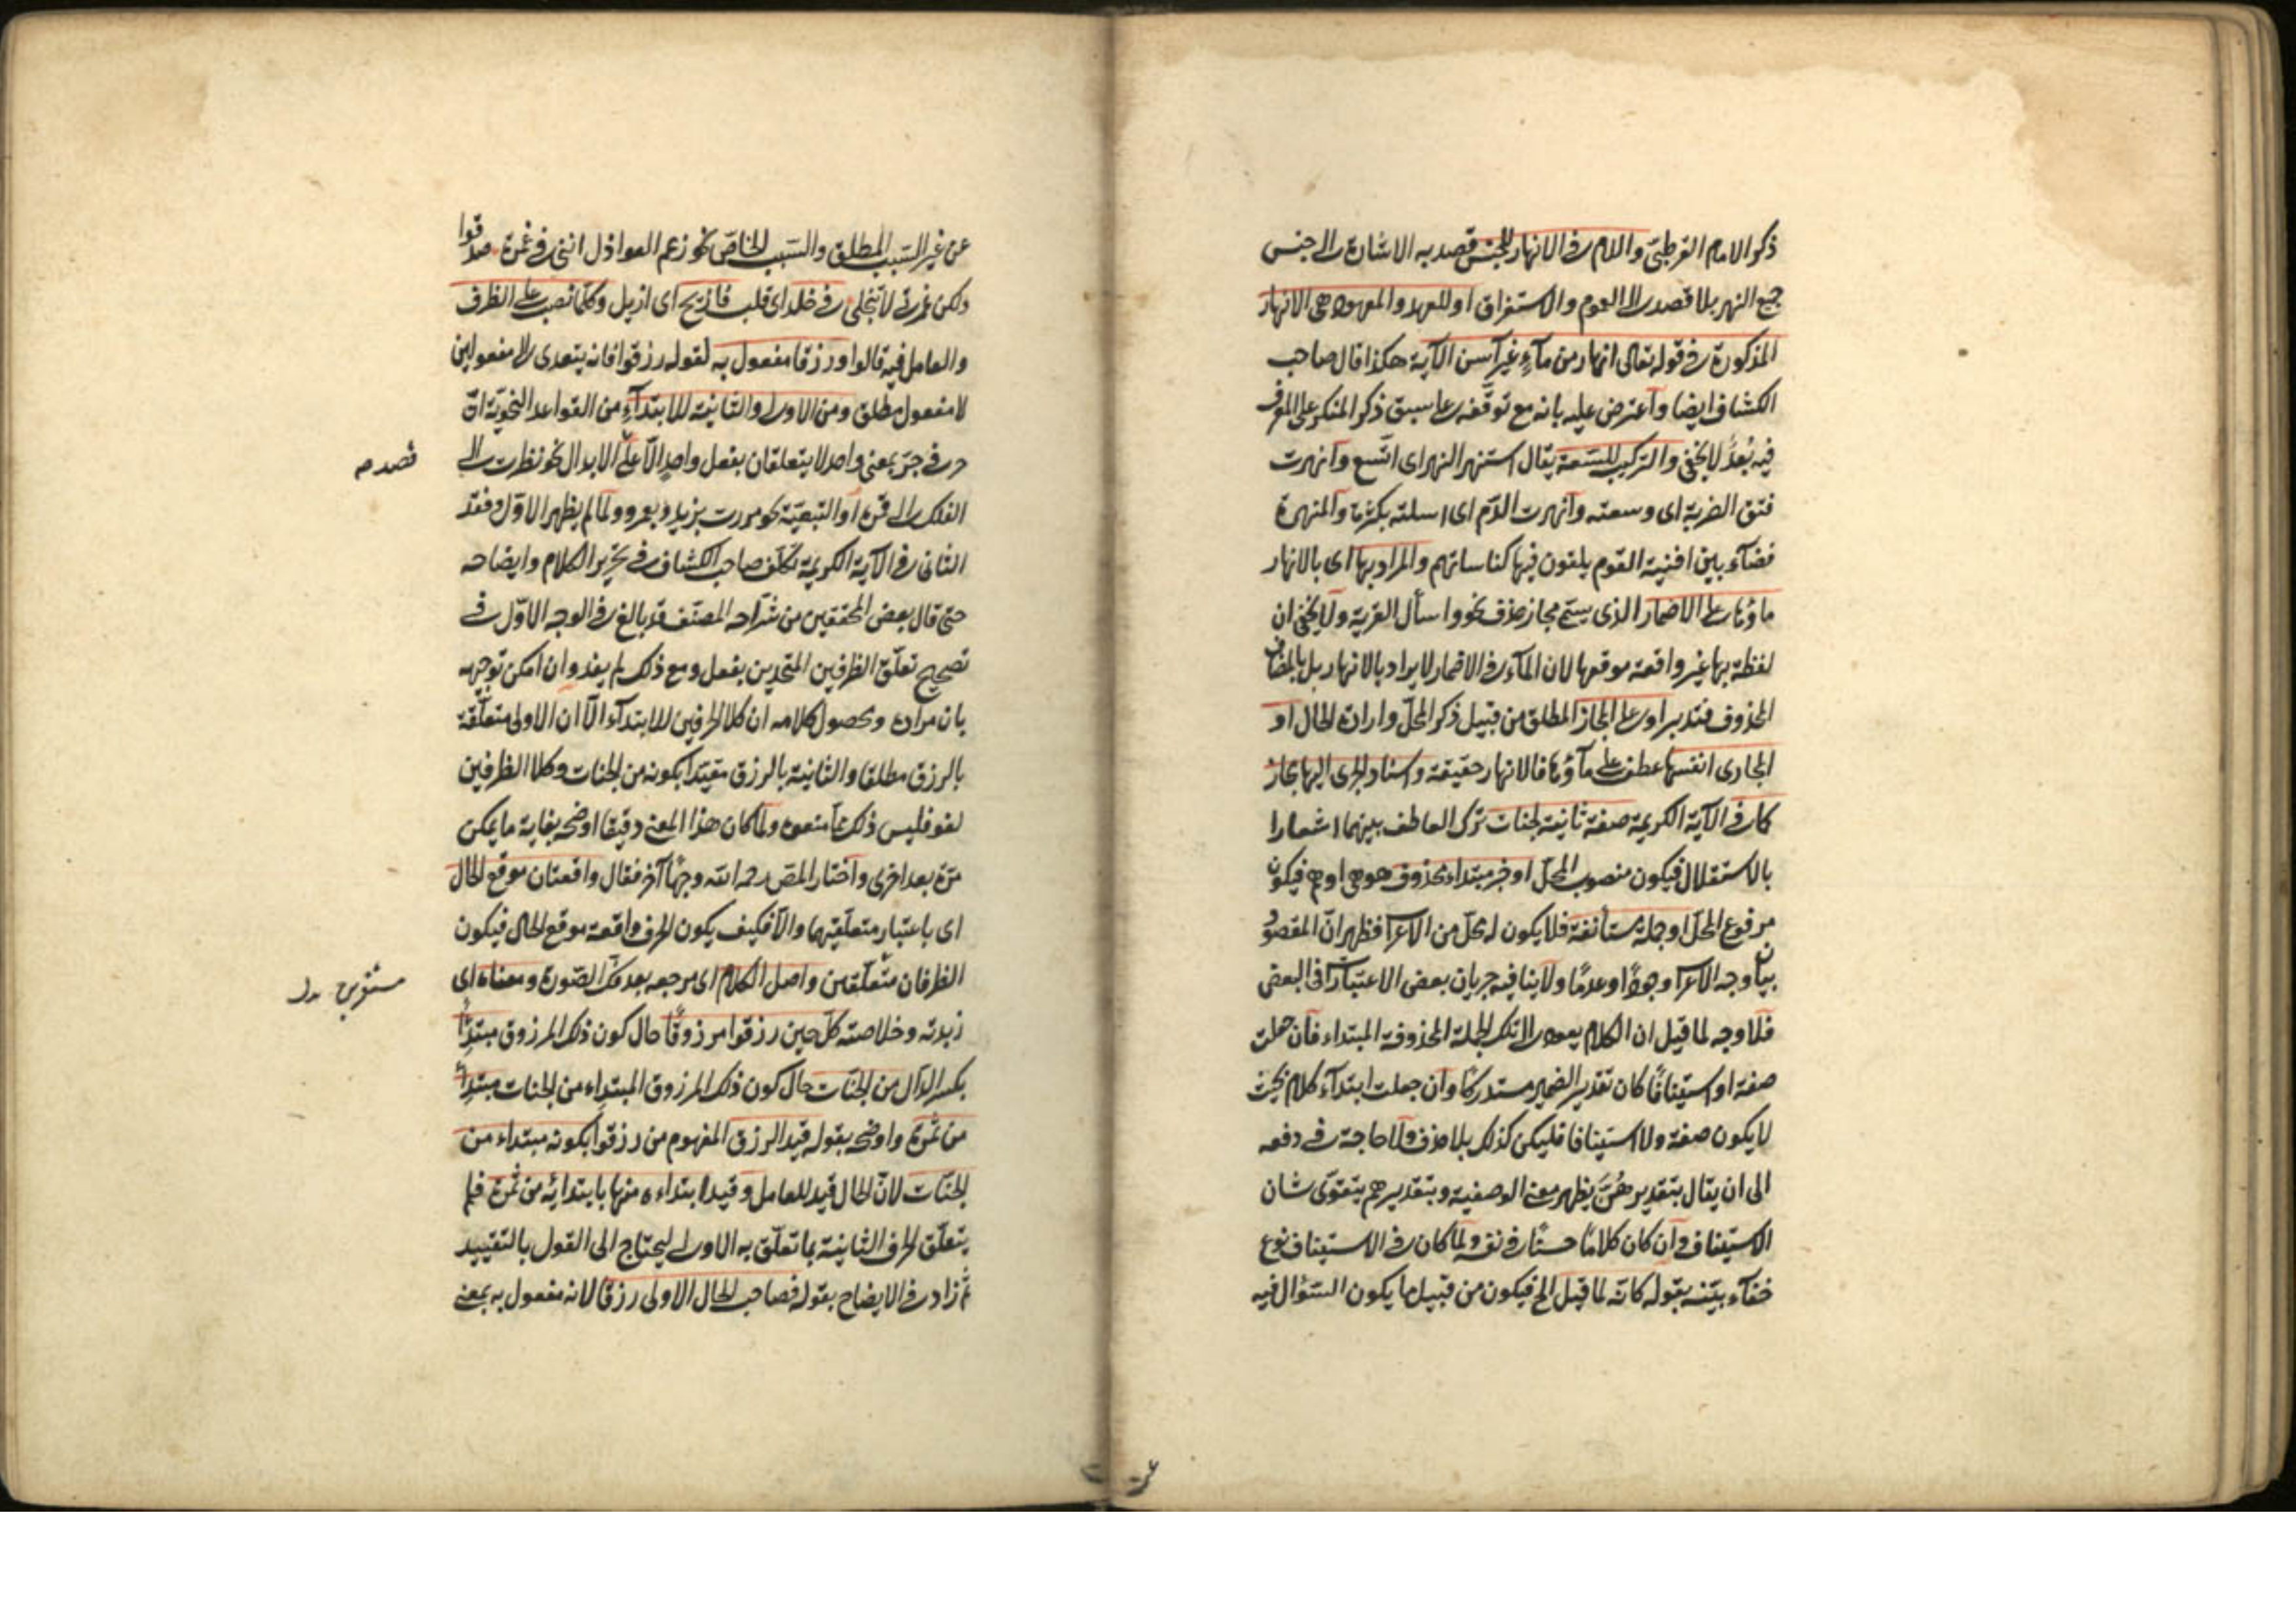 ذكره الامام القرطبيّ واللام فى الانهار للجنس قصد به الاشارة الى جنس
جمع النهر بلا قصد الى العموم والاستغراق او للعهد والمعهود هى الانهار
المذكورة فى قوله تعالى انهار من مآءٍ غير آسن الآية هكذا قال صاحب
الكشاف ايضا واعترض عليه بانه مع توقّفه على سبق ذكر المنكر على المعرف
فيه بُعدٌ لا يخفى والتركيب للسّعة يقال استنهر النهر اى اتّسع وانهرت
فتق الضربة اى وسعته وانهرت الدّم اى اسلته بكثرة والمنهرة
فضآء بين افنية القوم يلقون فيها كناساتهم والمراد بها اى بالانهار
ماؤها على الاضمار الذى يسمّى مجاز حذف نحو واسأل القرية ولا يخفى ان
لفظة بها غير واقعة موقعها لان المآء فى الاضمار لا يراد بالانهار بل بالمضاف
المحذوف فتدبر او على المجاز المطلق من قبيل ذكر المحلّ وارادة الحال او
المجارى انفسها عطف على مآؤها فالانهار حقيقة واسناد الجرى اليها مجاز
كما فى الآية الكريمة صفة ثانية لجنات ترك العاطف بينهما اشعارا
بالاستقلال فيكون منصوب المحلّ او خبر مبتداء محذوف هو هى او هم فيكون
مرفوع المحلّ او جملة مستأنفة فلا يكون له محلّ من الاعراب فظهر انّ المقصود
بيان وجه الاعراب وجودًا وعدمًا ولا ينافيه جريان بعض الاعتبارات فى البعض
فلا وجه لما قيل ان الكلام يعود الى تلك الجملة المحذوفة المبتداء فان جعلت
صفة او استينافًا كان تقدير الضمير مستدركًا وان جعلت ابتدآء كلام بحيث
لا يكون صفة ولا استينافا فليكن كذلك بلا حذف ولا حاجة فى دفعه
الى ان يقال بتقدير هُنَّ يظهر معنى الوصفية وبتقدير هم يتقوّى شان
الاستيناف وان كان كلامًا حسنًا فى نفسه ولما كان فى الاستيناف نوع
خفآء بيّنه بقوله كانّه لما قيل الخ فيكون من قبيل ما يكون السّؤال فيه
عن غير السّبب المطلق والسّبب الخاصّ نحو زعم العواذل اننى فى غمرة صدقوا
ولكن غمرتى لا تنجلى فى خلد اى قلب فازيح اى ازيل وكلّما نصب على الظرف
والعامل فيه قالوا ورزقا مفعول به لقوله رزقوا فانه يتعدى الى مفعولين
لا مفعول مطلق ومن الاولى والثانية للابتدآء من القواعد النحويّة انّ
حرفى جرّ بمعنى واحد لا يتعلقان بفعل واحد الّا على الابدال نحو نظرت الى
الفلك الى قمره او التبعيّة نحو مررت بزيد وبعمرو ولما لم يظهر الاوّل وفقد
الثانى فى الآية الكريمة تكلّف صاحب الكشاف فى تحرير الكلام وايضاحه
حتى قال بعض المحققين من شرّاحه المصنّف قد بالغ فى الوجه الاوّل فى
تصحيح تعلّق الظرفين المتحدين بفعل ومع ذلك لم يفد وان امكن توجيهه
بان مراده ومحصول كلامه ان كلا الحرفين للابتدآء الّا ان الاولى متعلّقة
بالرزق مطلقا والثانية بالرزق مقيّدا بكونه من الجنات وكلا الظرفين
لغو فليس ذلك مما منعوه ولما كان هذا المعنى دقيقا اوضحه بغاية ما يمكن
مرّة بعد اخرى واختار المصّ رحمه الله وجهًا آخر فقال واقعتان موقع الحال
اى باعتبار متعلّقيهما والّا فكيف يكون الحرف واقعة موقع الحال فيكون
الظرفان متعلّقين واصل الكلام اى مرجعه بعد فكّ الصّورة ومعناه اى
زبدته وخلاصته كلّ حين رزقوا مرزوقًا حال كون ذلك المرزوق مبتدِأً
بكسر الدّال من الجنّات حال كون ذلك المرزوق المبتداء من الجنات مبتدِأً
من ثمرة واوضحه بقوله قيد الرزق المفهوم من رزقوا بكونه مبتداء من
الجنّات لانّ الحال قيد للعامل وقيد ابتداءه منها بابتدائه من ثمرة فلم
يتعلّق الحرف الثانية بما تعلّق به الاولى ليحتاج الى القول بالتقييد
ثم زاد فى الايضاح بقوله فصاحب الحال الاولى رزقا لانه مفعول به بمعنى
قصد صه
مستقرين